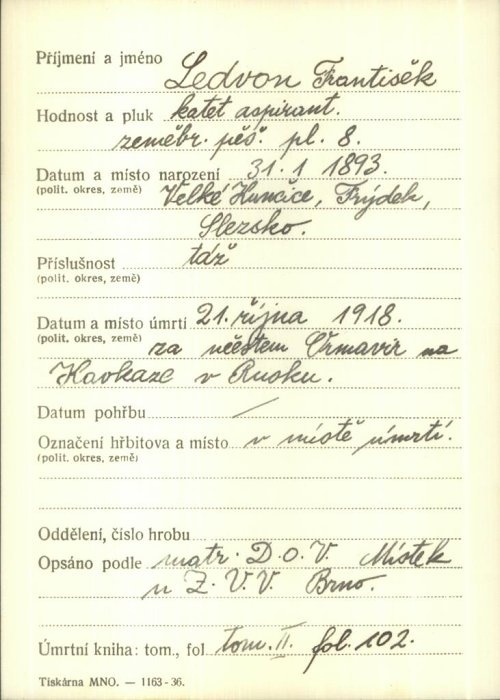 Příjmení a jméno Ledvon Františĕk
Hodnost a pluk katet aspirant.
zeměbr. pěš. pl. 8.
Datum a místo narození 31. 1 1893.
(polit. okres, země) Velké Kunčice, Frýdek,
Slezsko.
Příslušnost táž
(polit. okres, země)
Datum a místo úmrtí 21. října 1918.
(polit. okres, země) za městem Ormavir na
Kavkaze v Rusku.
Datum pohřbu
Označení hřbitova a místo v místě úmrtí.
(polit. okres, země)
Oddělení, číslo hrobu
Opsáno podle matr. D.O.V. Místek
u Z.V.V. Brno.
Úmrtní kniha: tom., fol tom. II. fol. 102.
Tiskárna MNO. — 1163-36.